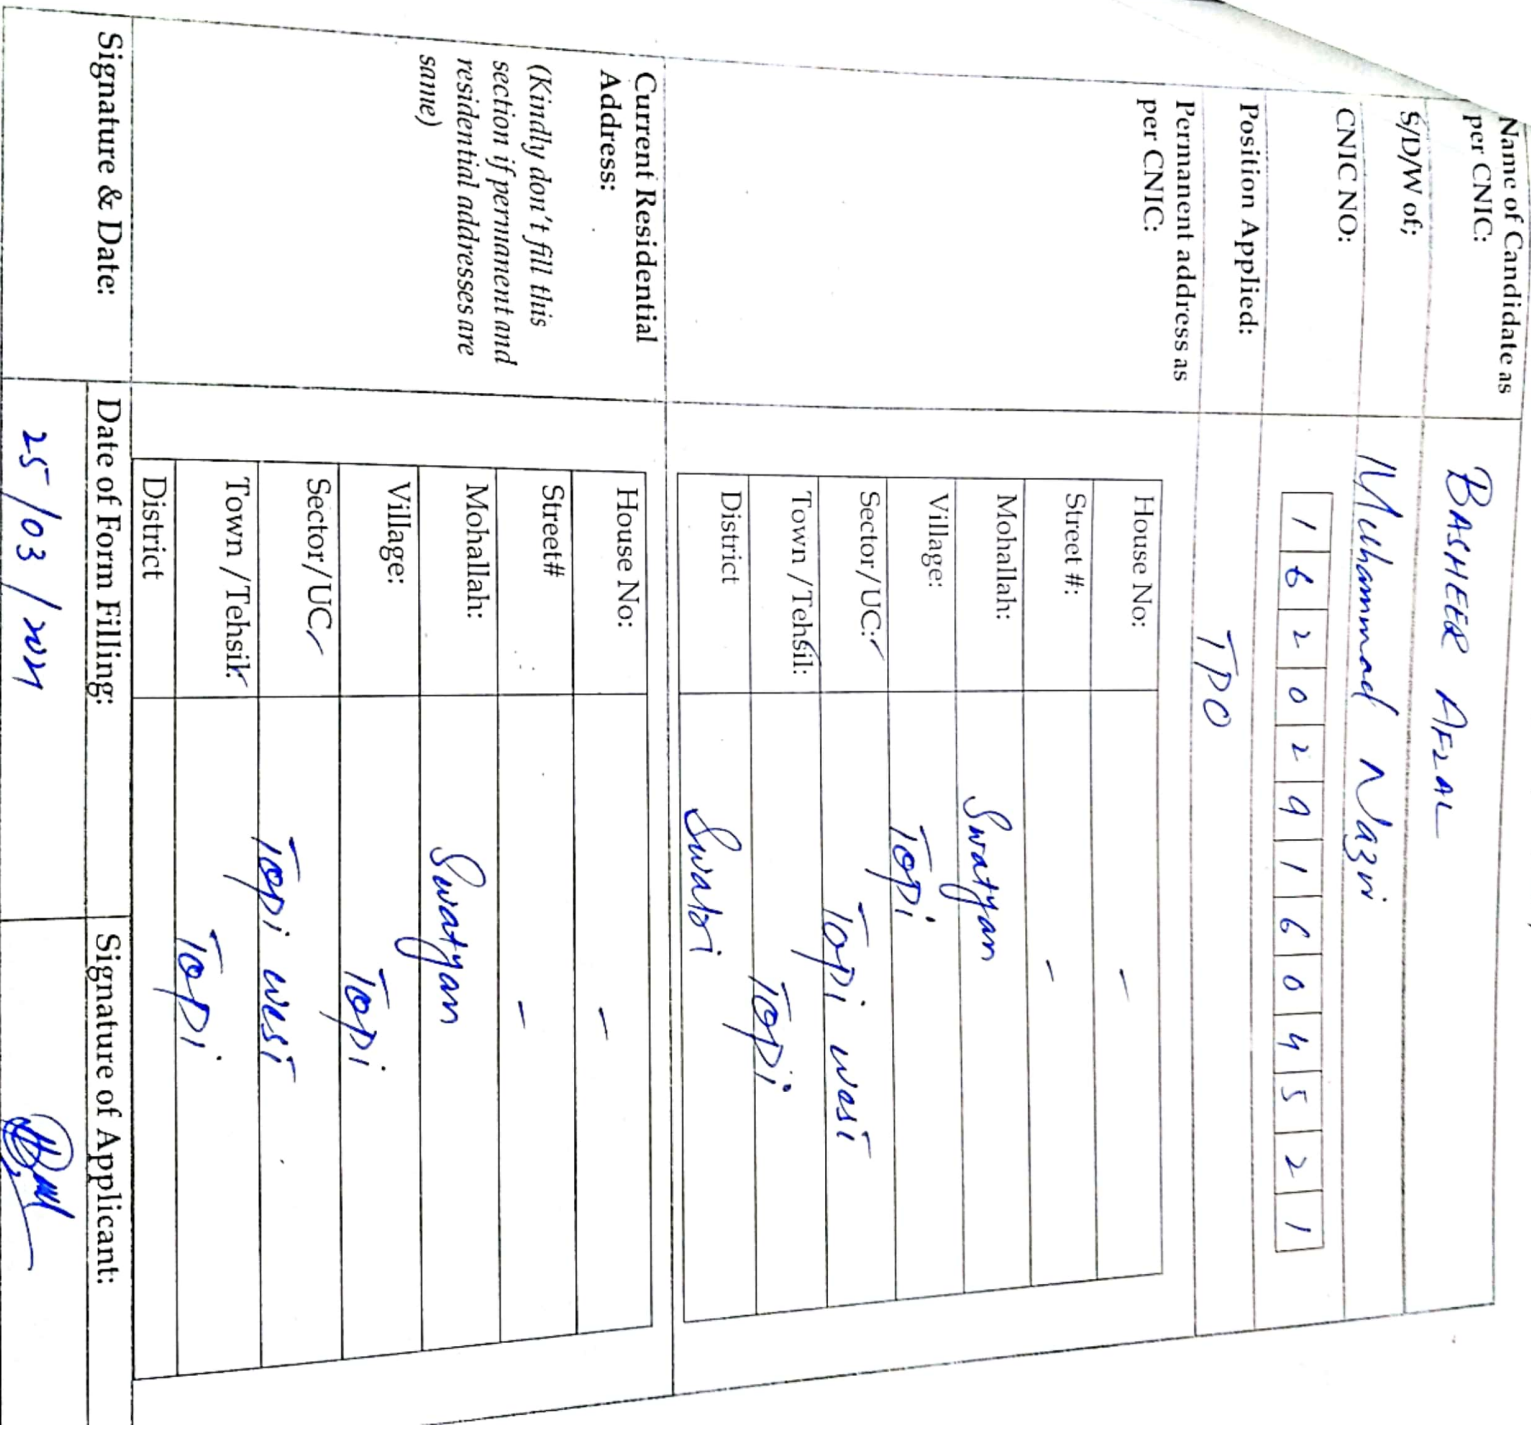 Name of Candidate as
per CNIC:
BASHEER AFZAL
S/D/W of;
Muhammad Nazir
CNIC NO:
1 6 2 0 2 9 1 6 0 4 5 2 1
Position Applied:
TPO
Permanent address as
per CNIC:
House No: –
Street #: –
Mohallah: Swatyan
Village: Topi
Sector/UC: Topi west
Town /Tehsil: Topi
District Swabi
Current Residential
Address:
(Kindly don't fill this
section if permanent and
residential addresses are
same)
House No: –
Street# –
Mohallah: Swatyan
Village: Topi
Sector/UC Topi west
Town /Tehsil: Topi
District
Signature & Date:
Date of Form Filling:
25/03/2021
Signature of Applicant: